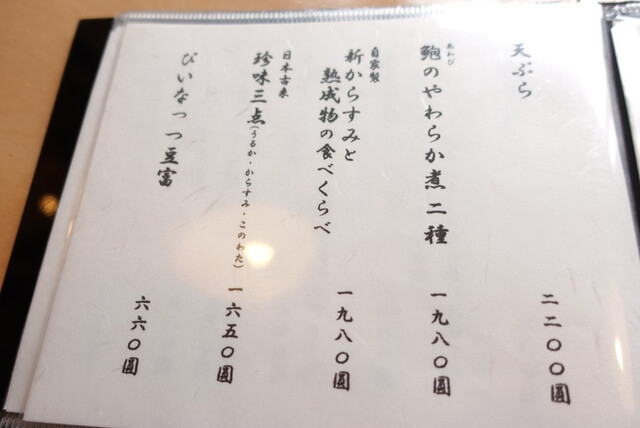 天ぷら
二二〇〇圓
あわび
鮑のやわらか煮 二種
一九八〇圓
自家製
新からすみと
熟成物の食べくらべ
一九八〇圓
日本古来
珍味三点(うるか・からすみ・このわた)
一六五〇圓
びいなっつ豆富
六六〇圓